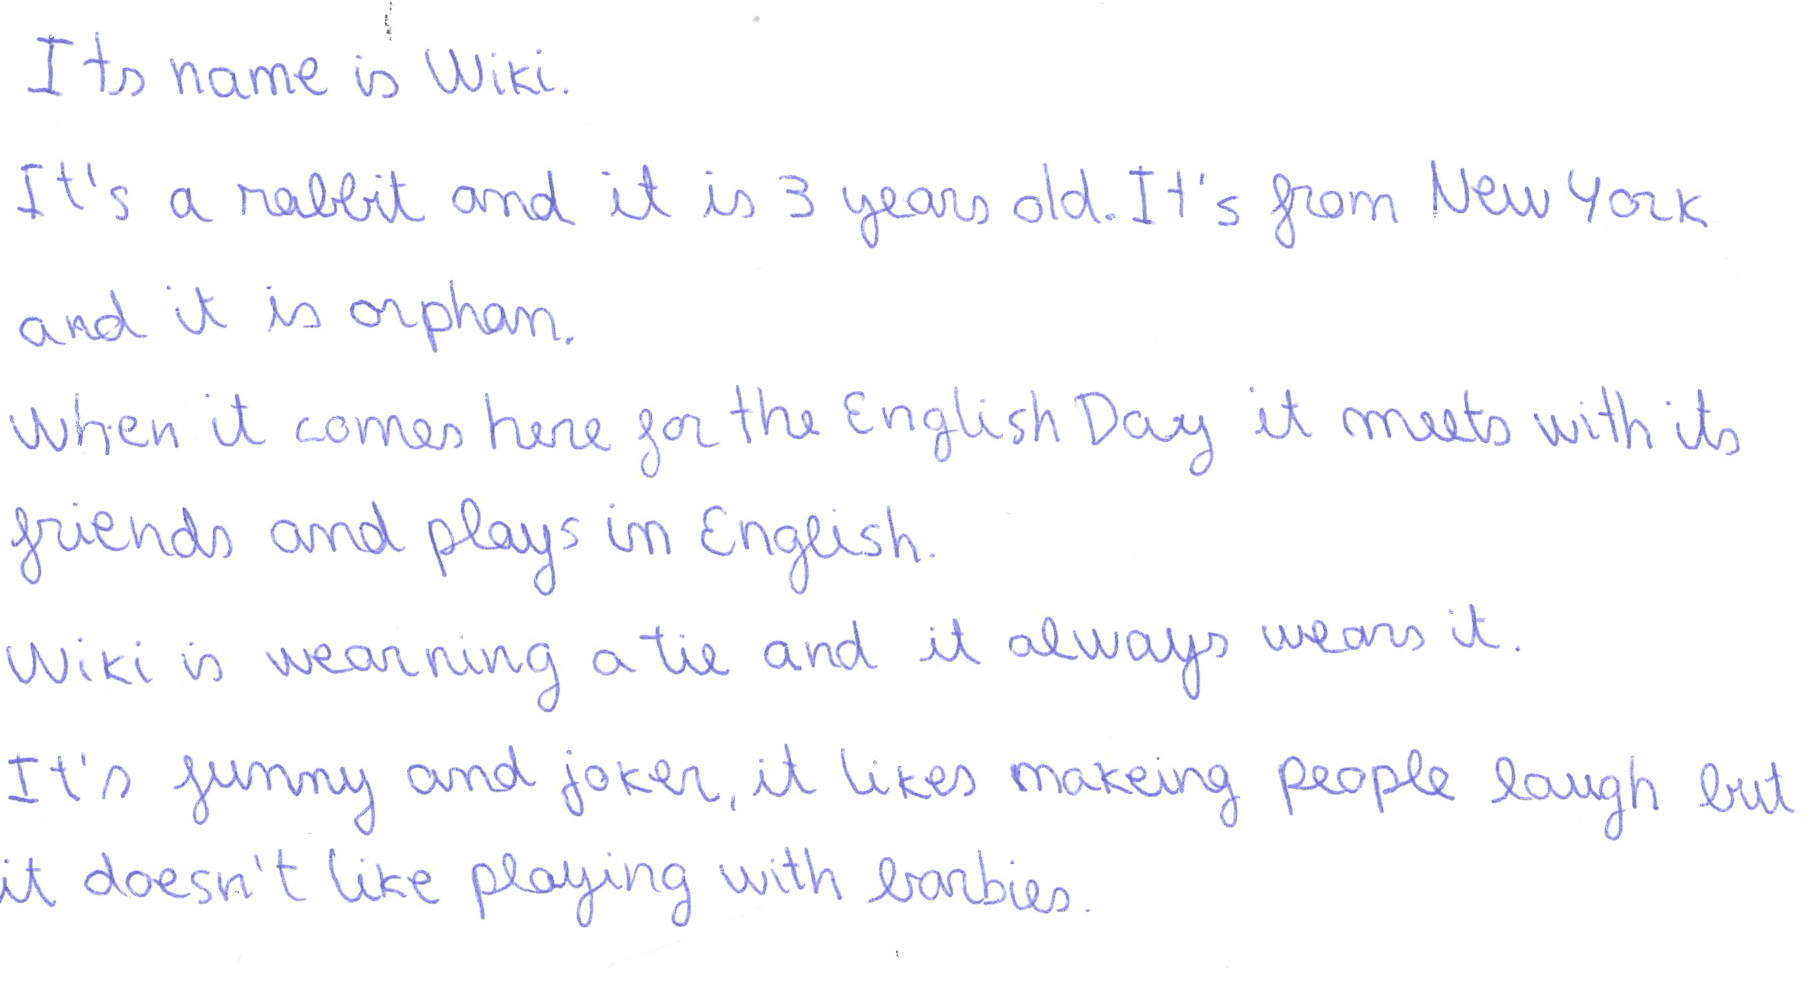 Its name is Wiki.
It's a rabbit and it is 3 years old. It's from New York
and it is orphan.
When it comes here for the English Day it meets with its
friends and plays in English.
Wiki is wearning a tie and it always wears it.
It's funny and joker, it likes makeing people laugh but
it doesn't like playing with barbies.